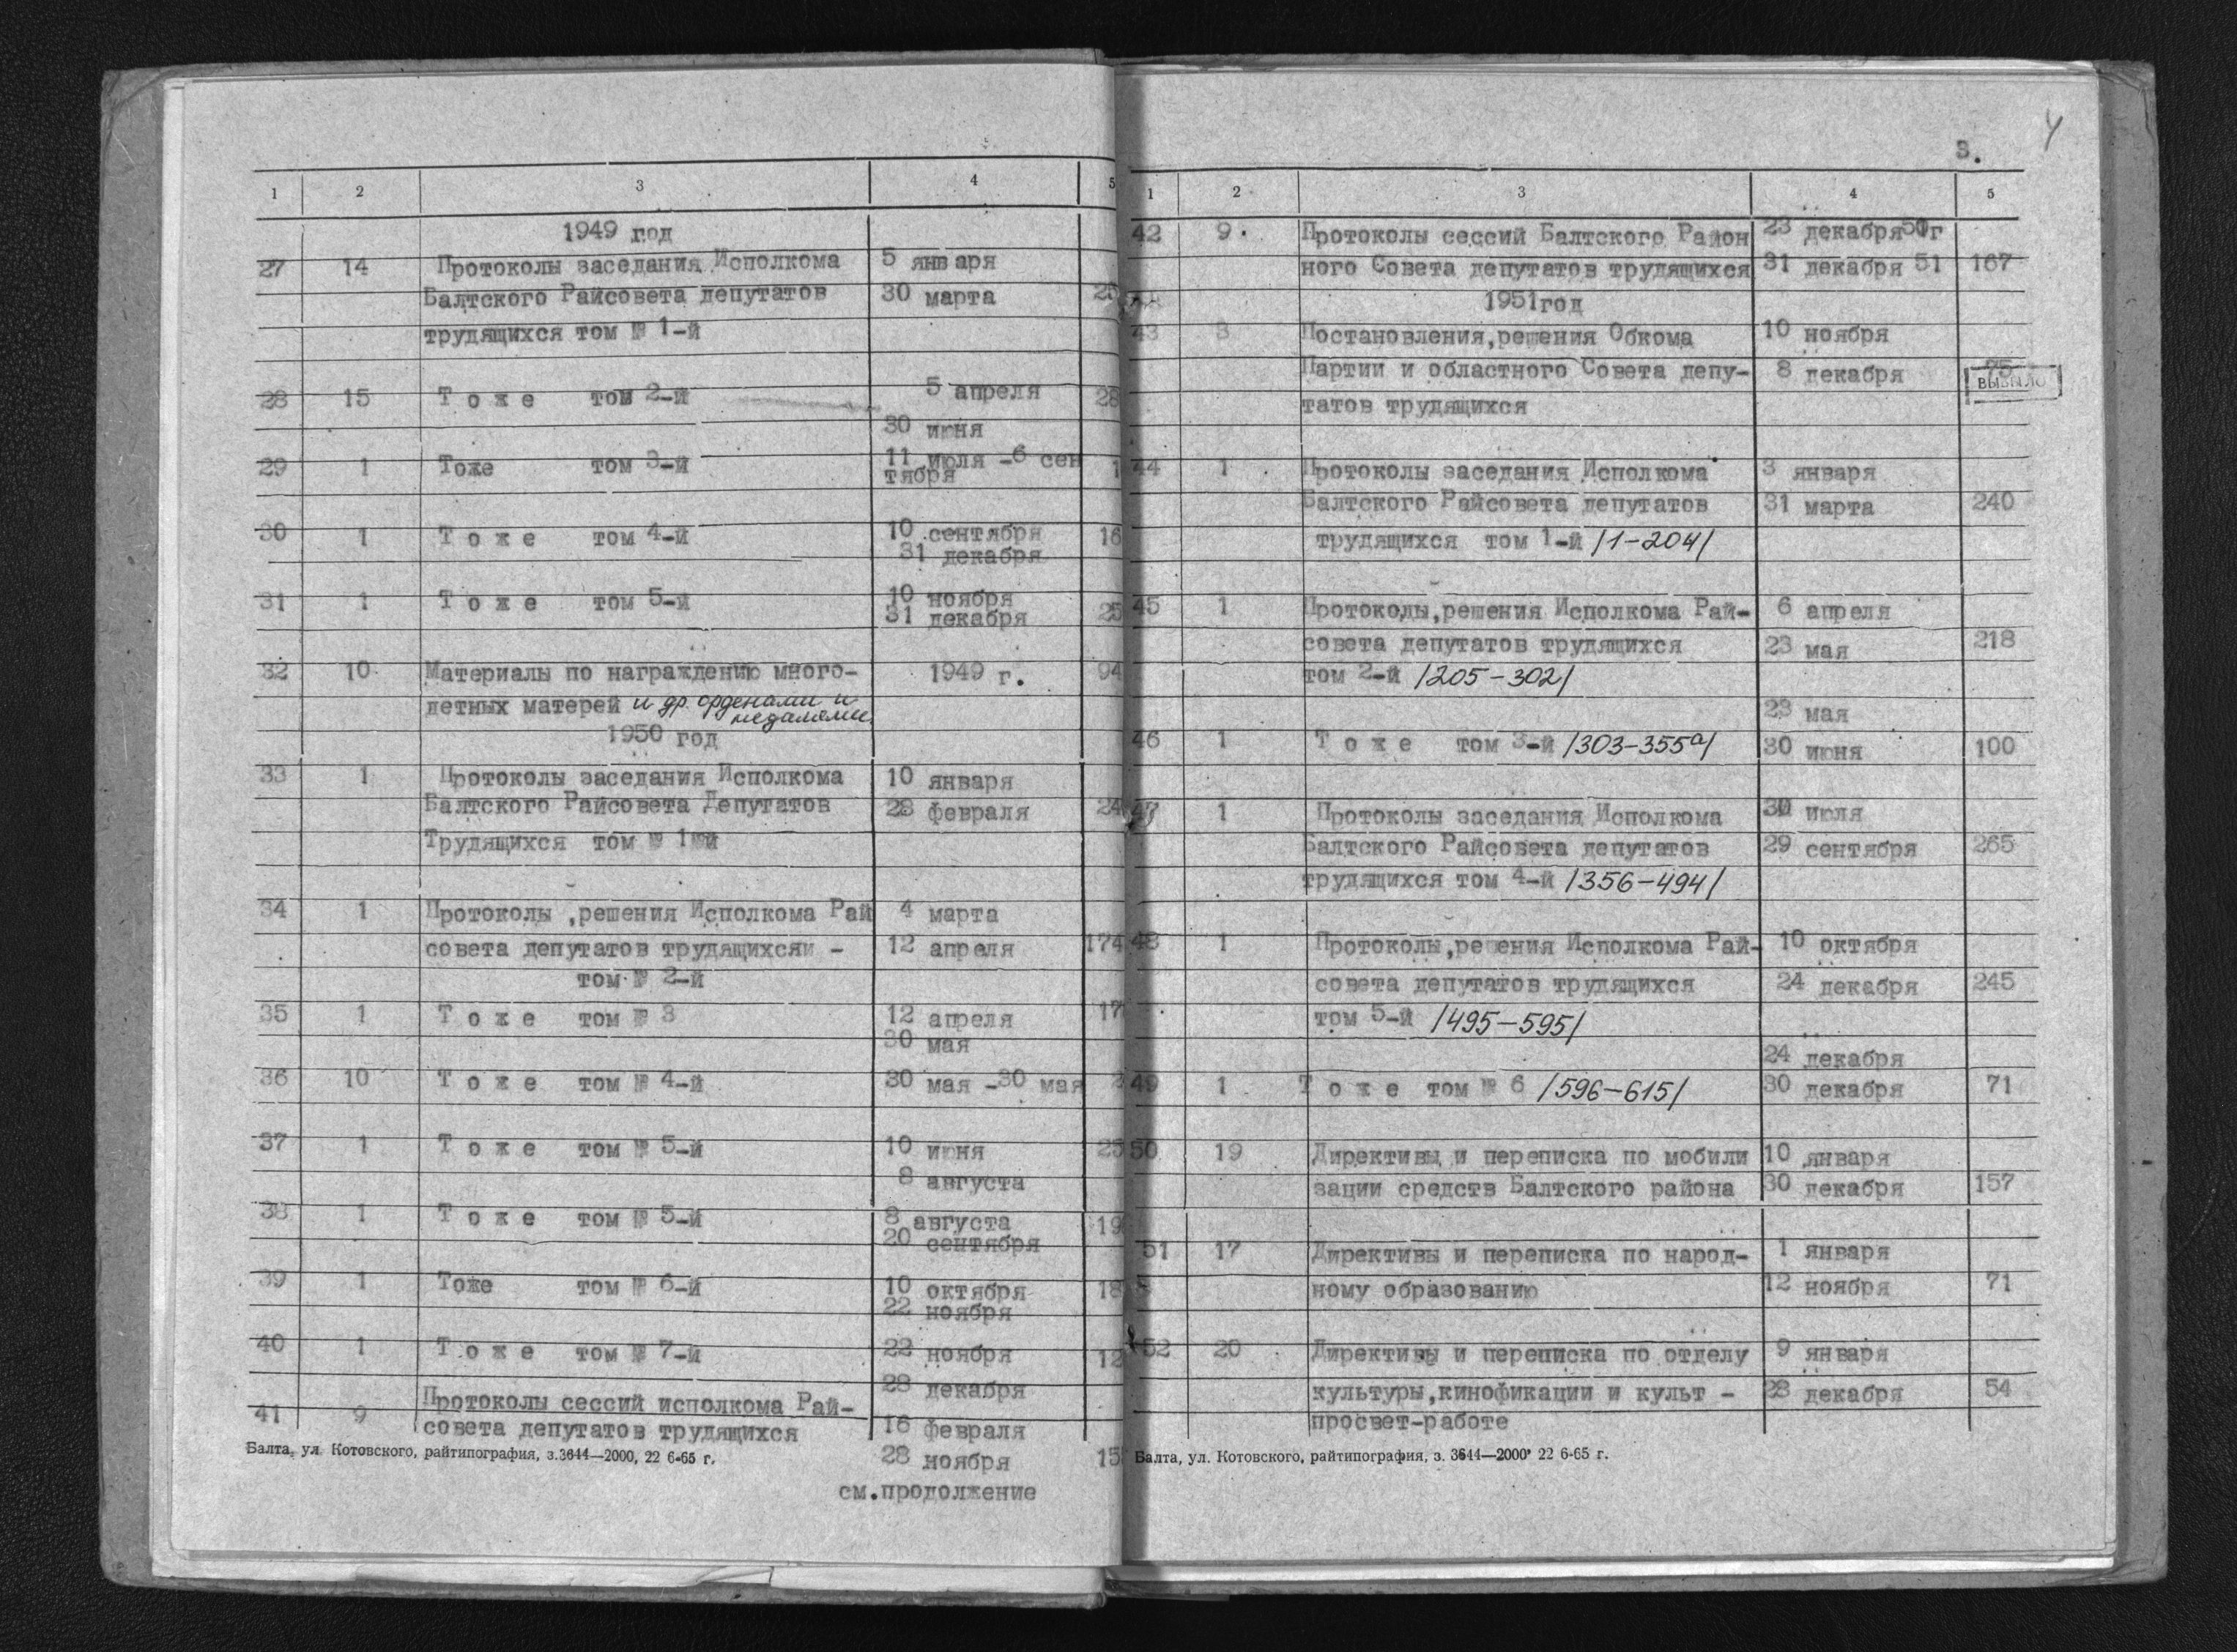 1 2 3 4 5
1949 год
27 14 Протоколы заседания Исполкома 5 января
Балтского Райсовета депутатов 30 марта 25
трудящихся том № 1-й
28 15 Т о ж е том 2-й 5 апреля 28
30 июня
29 1 Тоже том 3-й 11 июля -6 сен 1
тября
30 1 Т о ж е том 4-й 10 сентября 16
31 декабря
31 1 Т о ж е том 5-й 10 ноября 25
31 декабря
32 10 Материалы по награждению много- 1949 г. 94
детных матерей и др. орденами и
медалями.
1950 год
33 1 Протоколы заседания Исполкома 10 января
Балтского Райсовета Депутатов 28 февраля 24
Трудящихся том № 1 й
34 1 Протоколы ,решения Исполкома Рай 4 марта
совета депутатов трудящихся - 12 апреля 174
том № 2-й
35 1 Т о ж е том № 3 12 апреля 17
30 мая
36 10 Т о ж е том № 4-й 30 мая -30 мая 2
37 1 Т о ж е том № 5-й 10 июня 25
8 августа
38 1 Т о ж е том № 5-й 8 августа 19
20 сентября
39 1 Тоже том № 6-й 10 октября 18
22 ноября
40 1 Т о ж е том № 7-й 22 ноября 12
28 декабря
41 9 Протоколы сессий исполкома Рай-
совета депутатов трудящихся 16 февраля
28 ноября 15
Балта, ул. Котовского, райтипография, з.3644—2000, 22 6-65 г.
см.продолжение
4
3.
1 2 3 4 5
42 9. Протоколы сессий Балтского Район 23 декабря 50г
ного Совета депутатов трудящихся 31 декабря 51 167
1951год
43 3 Постановления,решения Обкома 10 ноября
Партии и областного Совета депу- 8 декабря 75
ВЫБЫЛО
татов трудящихся
44 1 Протоколы заседания Исполкома 3 января
Балтского Райсовета депутатов 31 марта 240
трудящихся том 1-й /1-204/
45 1 Протоколы,решения Исполкома Рай- 6 апреля
совета депутатов трудящихся 23 мая 218
том 2-й /205-302/
23 мая
46 1 Т о ж е том 3-й /303-355а/ 30 июня 100
47 1 Протоколы заседания Исполкома 30 июля
Балтского Райсовета депутатов 29 сентября 265
трудящихся том 4-й /356-494/
48 1 Протоколы,решения Исполкома Рай- 10 октября
совета депутатов трудящихся 24 декабря 245
том 5-й /495-595/
24 декабря
49 1 Т о ж е том № 6 /596-615/ 30 декабря 71
50 19 Директивы и переписка по мобили 10 января
зации средств Балтского района 30 декабря 157
51 17 Директивы и переписка по народ- 1 января
ному образованию 12 ноября 71
52 20 Директивы и переписка по отделу 9 января
культуры,кинофикации и культ - 28 декабря 54
просвет-работе
Балта, ул. Котовского, райтипография, з. 3644—2000 22 6-65 г.